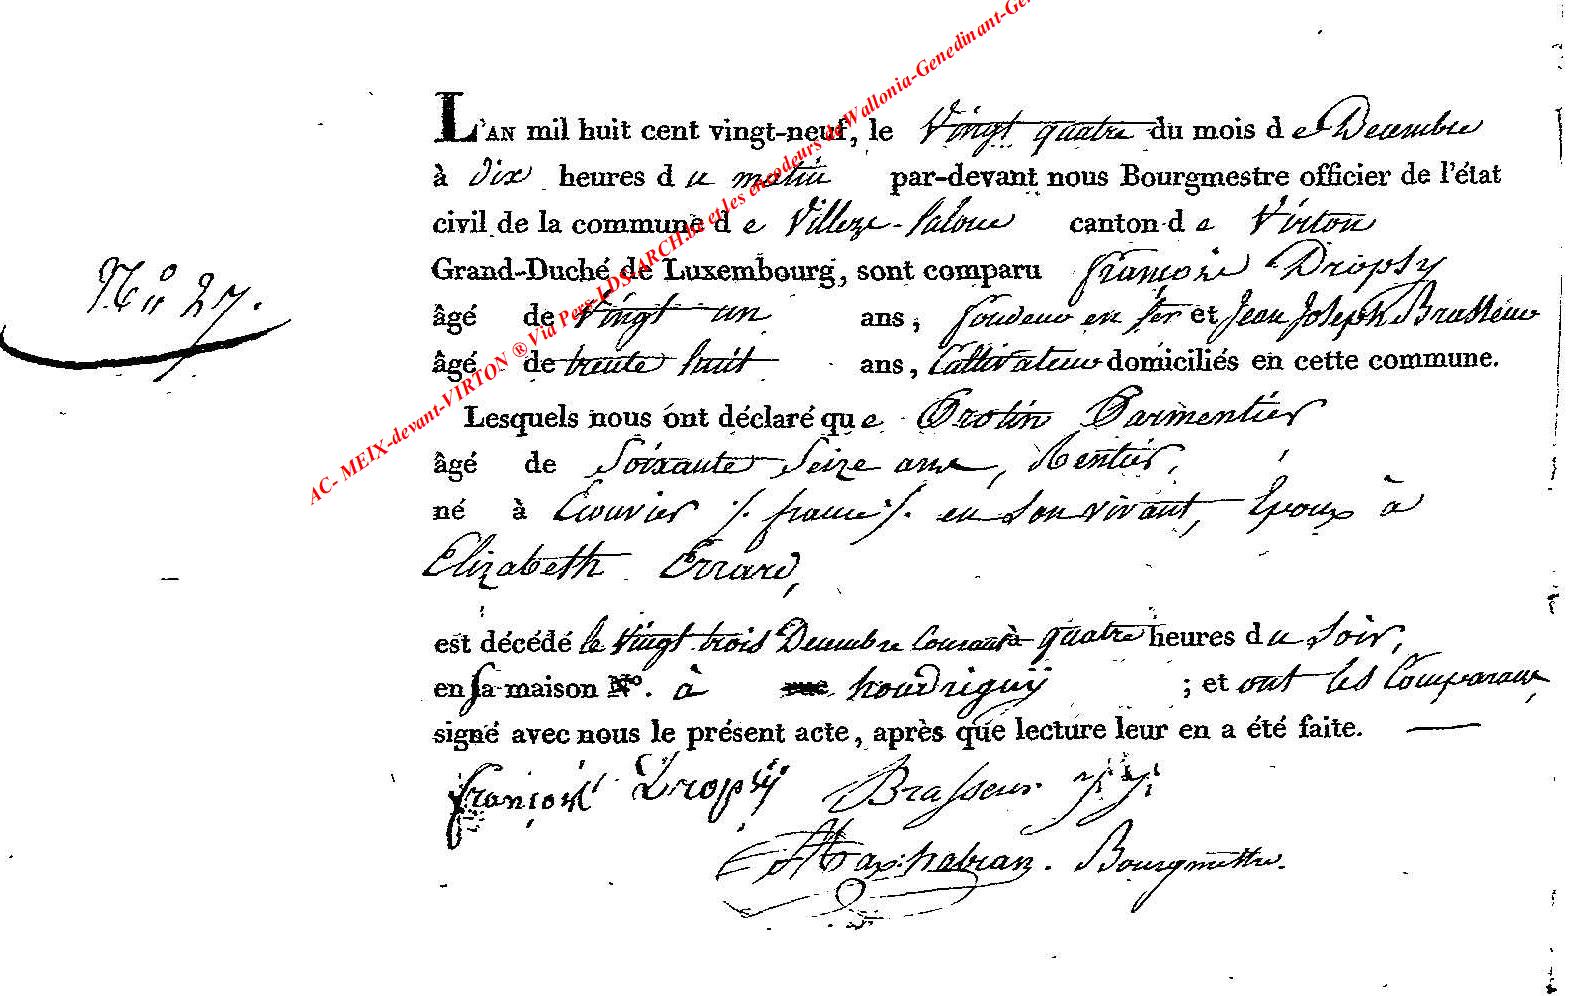 L'AN mil huit cent vingt-neuf, le Vingt quatre du mois de Decembre
à dix heures du matin par-devant nous Bourgmestre officier de l'état
civil de la commune de Villeze-Laloue canton de Virton
Grand-Duché de Luxembourg, sont comparu françois Dropsy
N° 27.
âgé de Vingt un ans, fondeur en fer et Jean Joseph Brasseur
âgé de trente huit ans, Cultivateur domiciliés en cette commune.
Lesquels nous ont déclaré que Parmentier
âgé de Soixante Seize ans, Rentier,
né à Ecouvier /. france /. en son vivant, Epoux à
Elizabeth Errard,
est décédé le Vingt trois Decembre Courant à quatre heures du Soir,
en sa maison N°. à rue houdriguÿ ; et ont les Comparans,
signé avec nous le présent acte, après que lecture leur en a été faite.
françois Dropsÿ Brasseur
Bourgmestre.
AC- MEIX-devant-VIRTON ® Via Pers-LDS-ARCH.be et les encodeurs de Wallonia-Genedinant-Ge